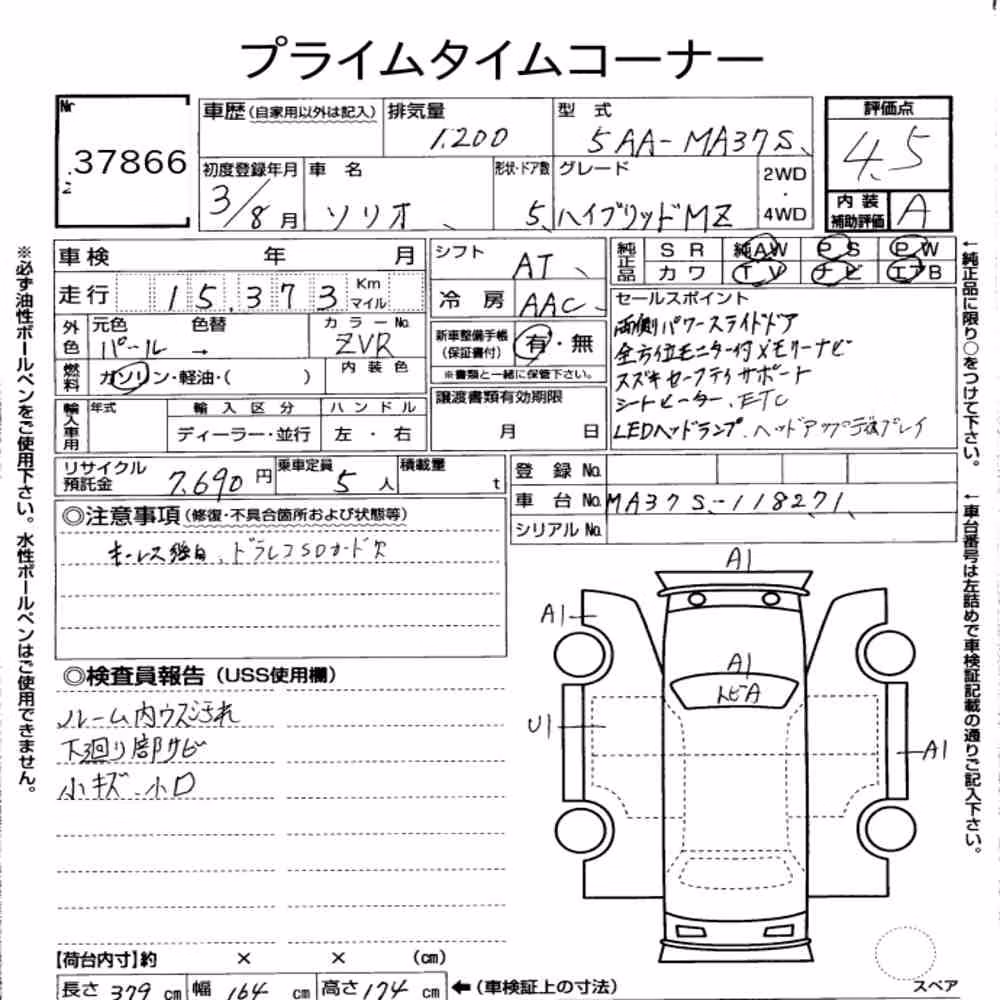 プライムタイムコーナー
Nr
37866
2
車歴(自家用以外は記入)
排気量
1.200
型 式
5AA-MA37S
評価点
4.5
初度登録年月
3/8月
車 名
ソリオ
形状・ドア数
5
グレード
ハイブリッドMZ
2WD
・
4WD
内 装
補助評価
A
車検 年 月
走行 15,373 Km
マイル
シフト
AT
冷 房
AAC
純正品
S R 純AW P S P W
カ ワ T V ナ ビ エアB
外色
元色 色替
パール →
カラーNo.
ZVR
燃料
ガソリン・軽油・( )
内 装 色
新車整備手帳
(保証書付)
有・無
※書類と一緒に保管下さい。
セールスポイント
両側パワースライドドア
全方位モニター付メモリーナビ
スズキセーフティサポート
シートヒーター、ETC
LEDヘッドランプ、ヘッドアップディスプレイ
輸入車用
年式
輸 入 区 分
ディーラー・並行
ハ ン ド ル
左 ・ 右
譲渡書類有効期限
月 日
リサイクル
預託金
7,690 円
乗車定員
5 人
積載量
t
登 録 No.
車 台 No. MA37S-118271
シリアル No.
◎注意事項(修復・不具合箇所および状態等)
キーレス独自、ドラレコSDカード欠
◎検査員報告(USS使用欄)
ルーム内ウス汚れ
下廻り部サビ
小キズ、小凹
A1
A1
A1
トビA
U1
A1
【荷台内寸】約 × × (cm)
長さ 379 cm 幅 164 cm 高さ 174 cm ←(車検証上の寸法)
スペア
※必ず油性ボールペンをご使用下さい。水性ボールペンはご使用できません。
←純正品に限り○をつけて下さい。
←車台番号は左詰めで車検証記載の通りご記入下さい。